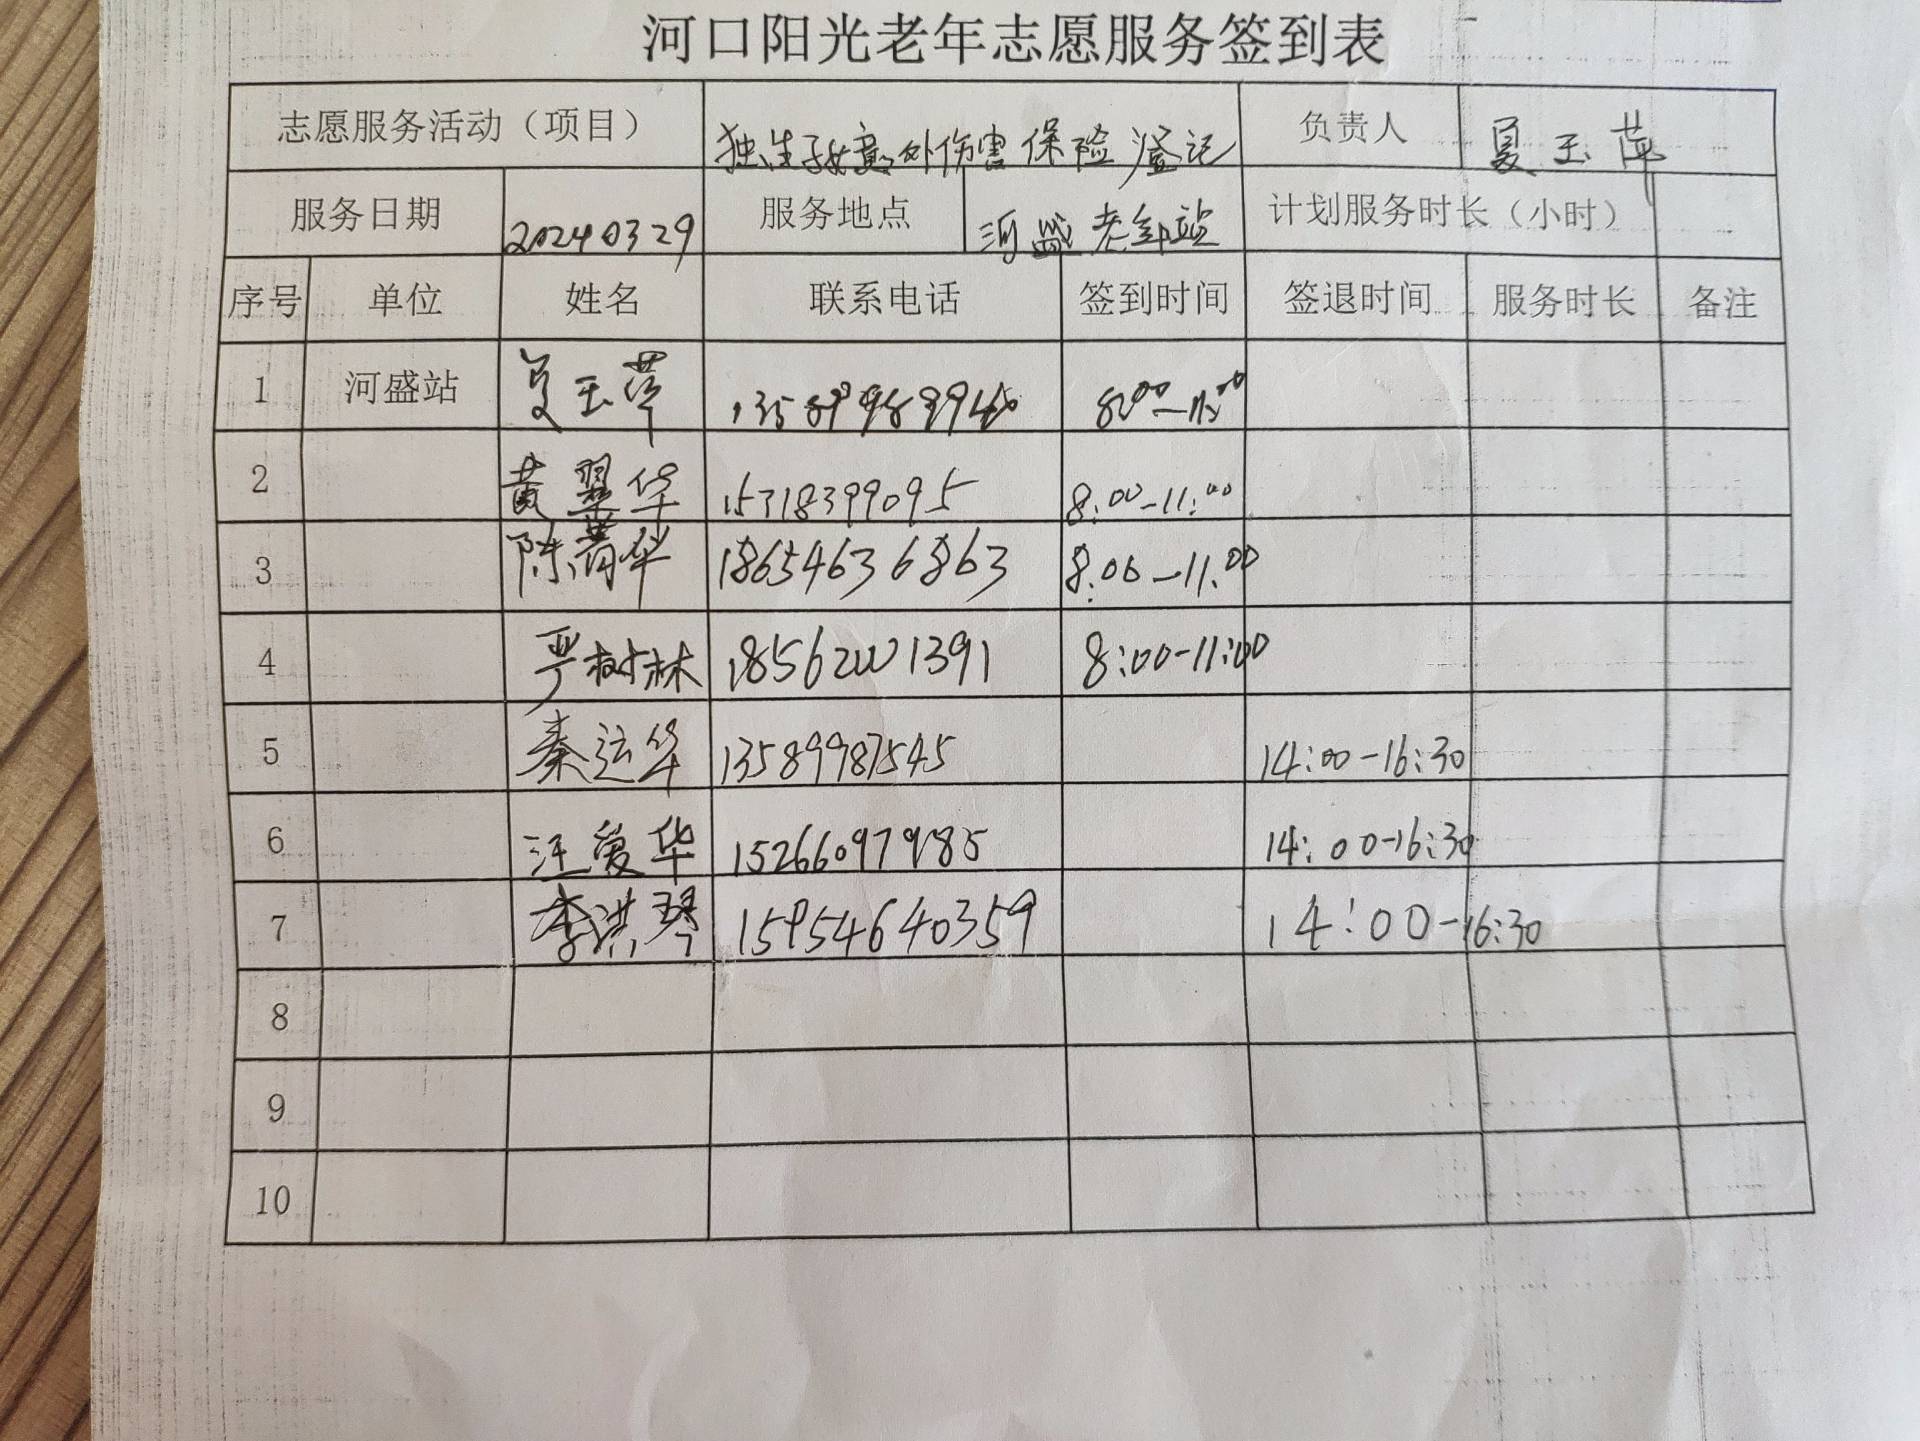 河口阳光老年志愿服务签到表
志愿服务活动（项目） 独生子女意外伤害保险登记 负责人 夏玉萍
服务日期 20240329 服务地点 河盛老年站 计划服务时长（小时）
序号 单位 姓名 联系电话 签到时间 签退时间 服务时长 备注
1 河盛站 夏玉萍
2 黄翠华 15318399095 8:00-11:00
3 陈菁华 18654636863 8:00-11:00
4 严树林 18562001391 8:00-11:00
5 秦运华 13589987545 14:00-16:30
6 汪爱华 15266097985 14:00-16:30
7 李洪琴 15954640359 14:00-16:30
8
9
10